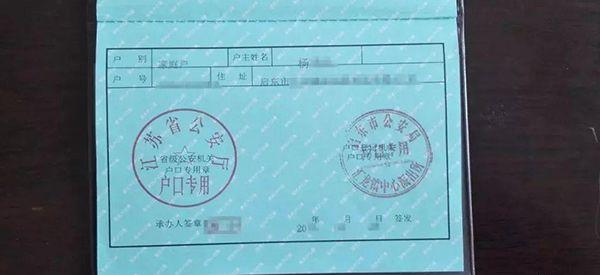 户 别 家庭户 户主姓名 杨
户 号 住 址 启东市
江苏省公安厅
省级公安机关
户口专用章
户口专用
启东市公安局
户口登记机关
户口专用章
汇龙镇中心派出所
承办人签章
20 年 月 日 签发